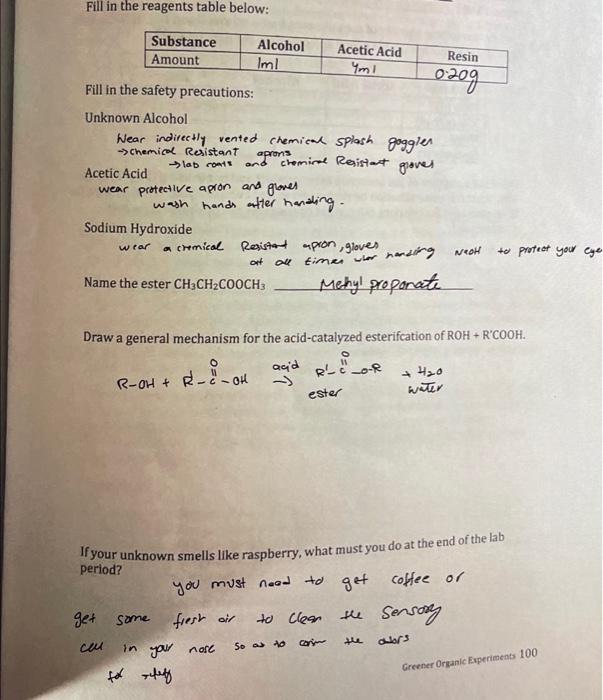 Fill in the reagents table below:
Substance Alcohol Acetic Acid Resin
Amount 1ml 4ml 0.20g
Fill in the safety precautions:
Unknown Alcohol
Wear indirectly vented chemical splash goggles
→ chemical Resistant aprons
→ lab coats and chemical Resistant gloves
Acetic Acid
wear protective apron and gloves
wash hands after handling.
Sodium Hydroxide
wear a chemical Resistant apron, gloves
at all times when handling NaOH to protect your eye
Name the ester CH₃CH₂COOCH₃ Methyl proponate
Draw a general mechanism for the acid-catalyzed esterifcation of ROH + R'COOH.
O O
R-OH + R'-C-OH acid → R'-C-O-R + H₂O
ester water
If your unknown smells like raspberry, what must you do at the end of the lab
period?
you must need to get coffee or
get some fresh air to clean the sensory
cell in your nose so as to the odors
Greener Organic Experiments 100